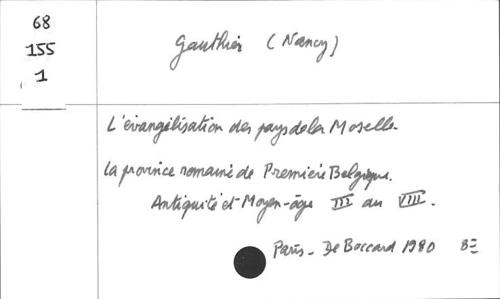 68
155
1
Gauthier (Nancy)
L'évangélisation des pays de la Moselle.
La province romaine de Première Belgique.
Antiquité et Moyen-âge III au VIII.
Paris - De Boccard 1980 8=